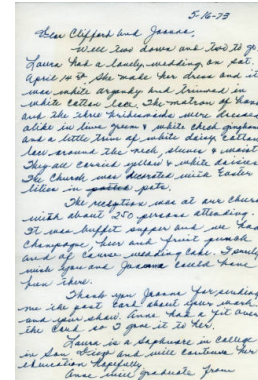 5-16-73
Dear Clifford and Joanna,
Well two down and two to go.
Laura had a lovely wedding on Sat.
April 14th. She made her dress and it
was white organdy and trimmed in
white cotton lace. The matron of honor
and the three bridesmaids were dressed
alike in lime green & white check gingham
and a little trim of white daisy cotton
lace around the neck sleeves & waist
They all carried yellow & white daisies
The Church was decorated with Easter
lilies in potted pots.
The reception was at our church
with about 250 persons attending.
It was buffet supper and we had
champagne, beer and fruit punch
and of course wedding cake. I surely
wish you and Joanna could have
been there.
Thank you Joanna for sending
me the post card about your work
and your show. Anne had a fit over
the card so I gave it to her.
Laura is a Sophmore in college
in San Diego and will continue her
education hopefully.
Anne will graduate from